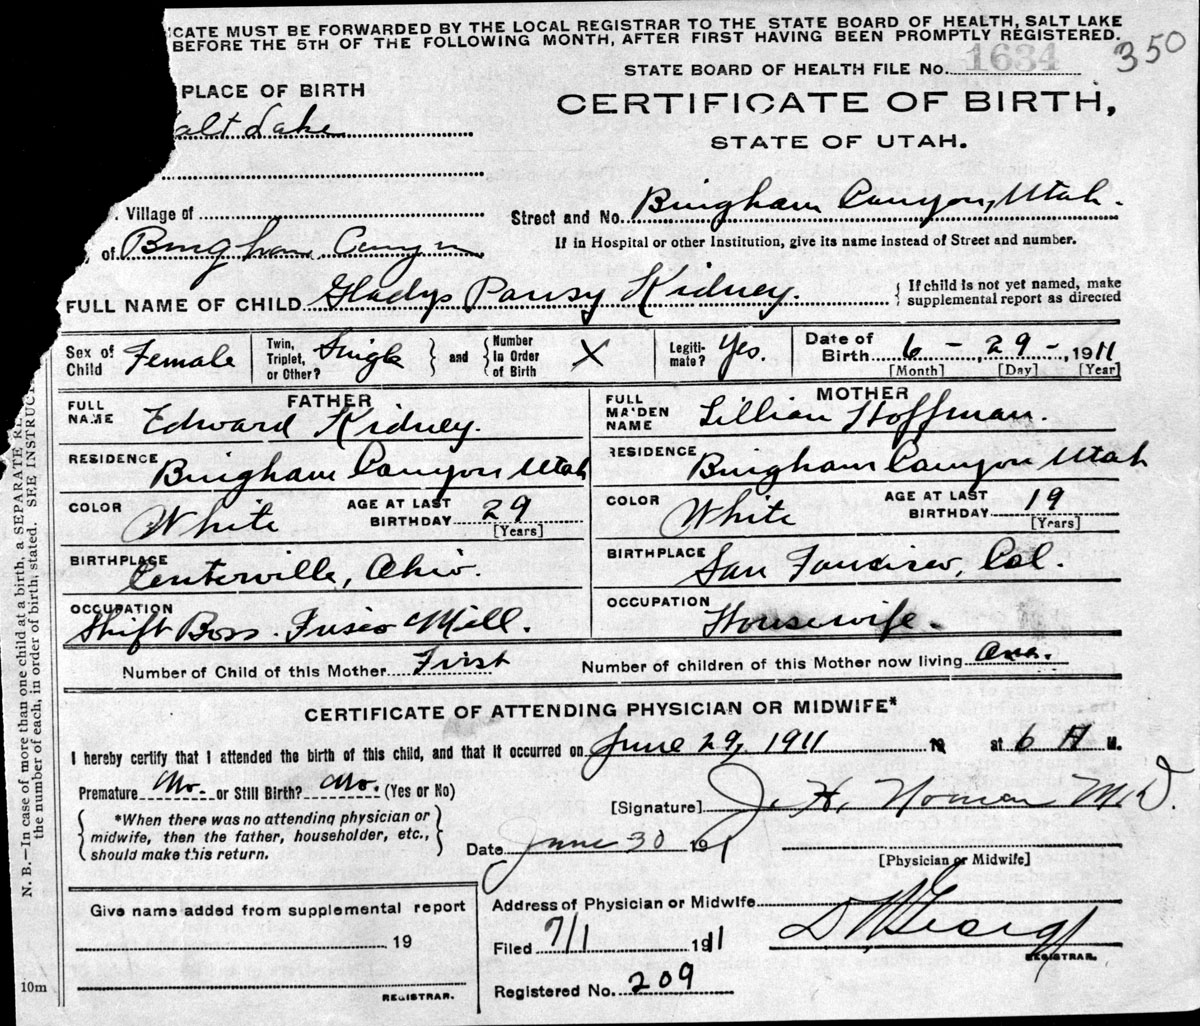 CATE MUST BE FORWARDED BY THE LOCAL REGISTRAR TO THE STATE BOARD OF HEALTH, SALT LAKE
BEFORE THE 5TH OF THE FOLLOWING MONTH, AFTER FIRST HAVING BEEN PROMPTLY REGISTERED.
350
STATE BOARD OF HEALTH FILE No. 1634
PLACE OF BIRTH
CERTIFICATE OF BIRTH,
alt Lake
STATE OF UTAH.
Village of
Street and No. Bingham Canyon, Utah.
of Bingham Canyon
If in Hospital or other Institution, give its name instead of Street and number.
FULL NAME OF CHILD Gladys Pansy Kidney.
{ If child is not yet named, make
supplemental report as directed
Sex of Child Female
Twin, Triplet, or Other? Single
} and { Number In Order of Birth X
Legiti-mate? Yes.
Date of Birth 6 - 29 - , 1911
[Month] [Day] [Year]
FATHER
FULL NAME Edward Kidney.
RESIDENCE Bingham Canyon Utah
COLOR White
AGE AT LAST BIRTHDAY 29
[Years]
BIRTHPLACE Centerville, Ohio.
OCCUPATION Shift Boss. Mill.
MOTHER
FULL MAIDEN NAME Lillian Hoffman.
RESIDENCE Bingham Canyon Utah
COLOR White
AGE AT LAST BIRTHDAY 19
[Years]
BIRTHPLACE San Francisco, Cal.
OCCUPATION Housewife.
Number of Child of this Mother First
Number of children of this Mother now living One.
CERTIFICATE OF ATTENDING PHYSICIAN OR MIDWIFE*
I hereby certify that I attended the birth of this child, and that it occurred on June 29, 1911 19 at 6 A M.
Premature No. or Still Birth? No. (Yes or No)
[Signature] J. H. M.D.
{ *When there was no attending physician or
midwife, then the father, householder, etc.,
should make this return. }
Date June 30 191
[Physician or Midwife]
Give name added from supplemental report
19
REGISTRAR.
Address of Physician or Midwife
Filed 7/1 1911
REGISTRAR.
Registered No. 209
10m
N. B.—In case of more than one child at a birth, a SEPARATE RE
the number of each, in order of birth, stated. SEE INSTRUCT